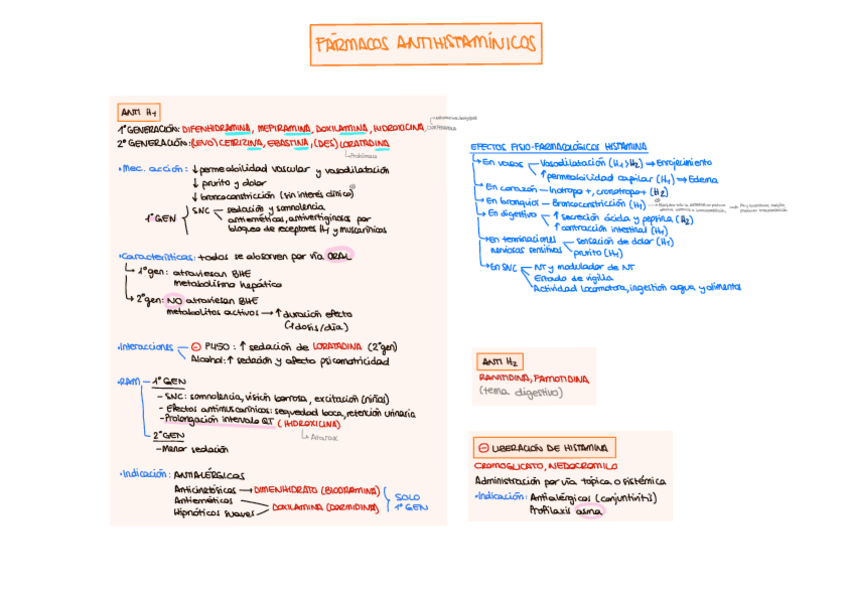 FÁRMACOS ANTIHISTAMÍNICOS
ANTI H1
1ª GENERACIÓN: DIFENHIDRAMINA, MEPIRAMINA, DOXILAMINA, HIDROXICINA,
2ª GENERACIÓN: (LEVO)CETIRIZINA, EBASTINA, (DES)LORATADINA
•Mec. acción: ↓permeabilidad vascular y vasodilatación
↓prurito y dolor
↓broncoconstricción (sin interés clínico)
1ª GEN SNC sedación y somnolencia
antieméticos, antivertiginosos por
bloqueo de receptores H1 y muscarínicos
•Características: todos se absorven por vía ORAL
1ª gen: atraviesan BHE
metabolismo hepático
2ª gen: NO atraviesan BHE
metabolitos activos → ↑duración efecto
(1 dosis/día)
•Interacciones ⊖ P450: ↑ sedación de LORATADINA (2ª gen)
Alcohol: ↑ sedación y afecta psicomotricidad
•RAM 1ª GEN
- SNC: somnolencia, visión borrosa, excitación (niños)
- Efectos antimuscarínicos: sequedad boca, retención urinaria
- Prolongación intervalo QT (HIDROXICINA)
↳ Atarax
2ª GEN
- Menor sedación
•Indicación: ANTIALÉRGICOS
Anticinetósicos → DIMENHIDRATO (BIODRAMINA)
Antieméticos
Hipnóticos suaves DOXILAMINA (DORMIDINA)
SOLO
1ª GEN
EFECTOS FISIO-FARMACOLÓGICOS HISTAMINA
En vasos Vasodilatación (H1>H2) → Enrojecimiento
↑ permeabilidad capilar (H1) → Edema
En corazón — Inotropo +, cronotropo + (H2)
En bronquio — Broncoconstricción (H1)
En digestivo ↑ secreción ácida y peptina (H2)
↑ contracción intestinal (H1)
En terminaciones nerviosas sensitivas sensación de dolor (H1)
prurito (H1)
En SNC NT y modulador de NT
Estado de vigilia
Actividad locomotora, ingestión agua y alimentos
ANTI H2
RANITIDINA, FAMOTIDINA
(tema digestivo)
⊖ LIBERACIÓN DE HISTAMINA
CROMOGLICATO, NEDOCROMILO
Administración por vía tópica o sistémica
•Indicación: Antialérgicos (conjuntivitis)
Profilaxis asma